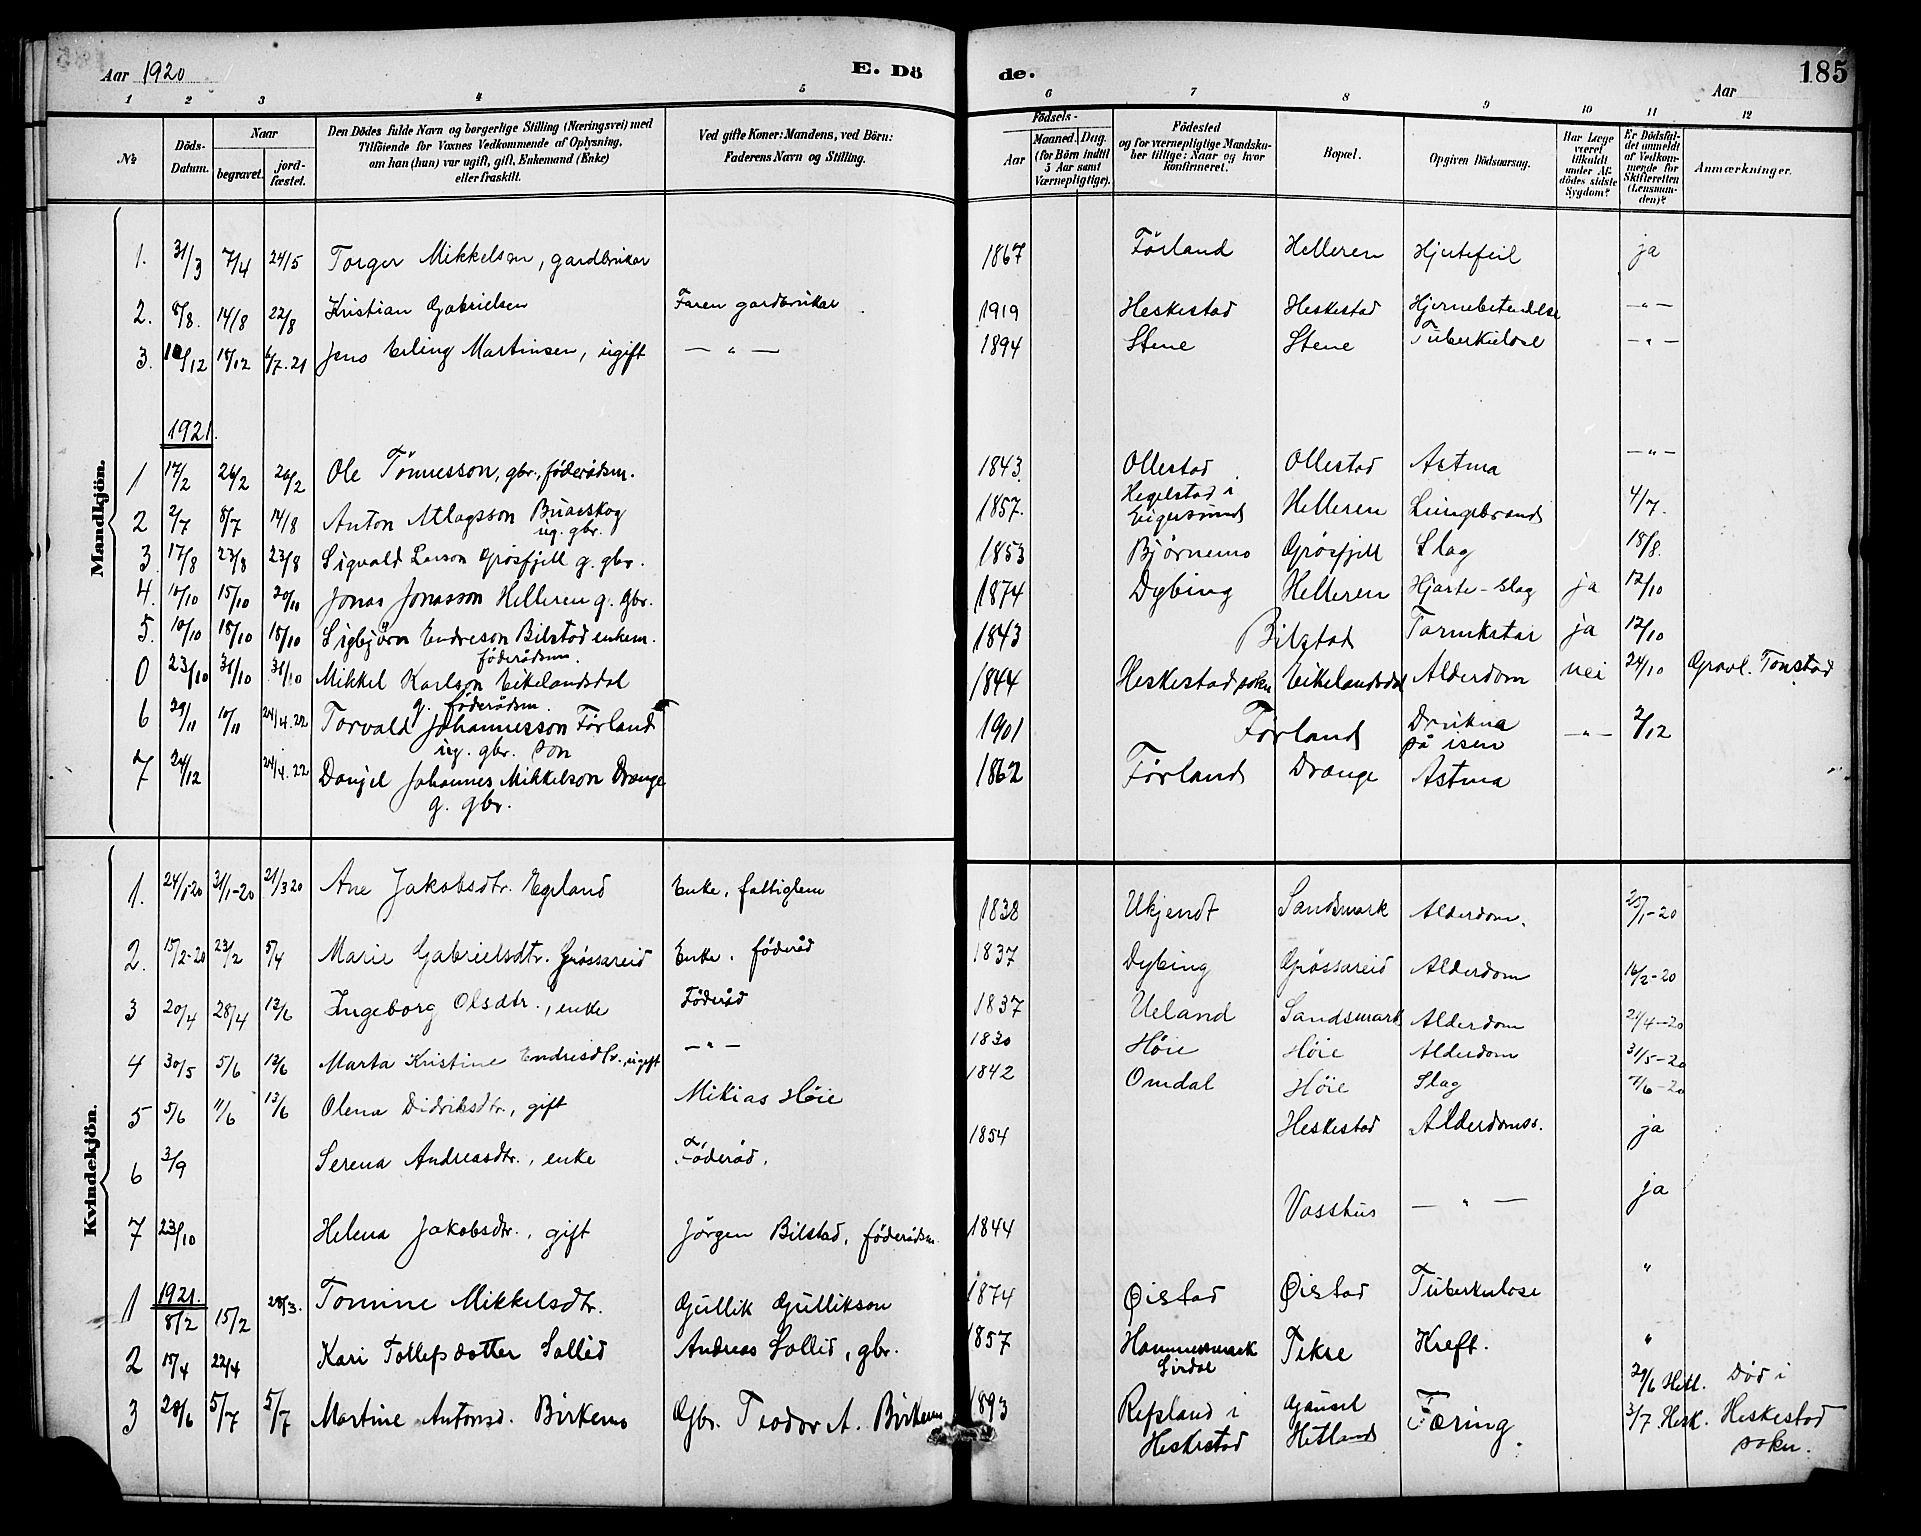 Aar 1920 E. Döde. Aar 185
1 2 3 4 5 6 7 8 9 10 11 12
№ Döds-Datum. Naar begravet. jord-fæstet. Den Dödes fulde Navn og borgerlige Stilling (Næringsvei) med Tilföiende for Voxnes Vedkommende af Oplysning, om han (hun) var ugift, gift, Enkemand (Enke) eller fraskilt. Ved gifte Koner: Mandens, ved Börn: Faderens Navn og Stilling. Födsels- Aar Maaned. Dag. (for Börn indtil 5 Aar samt Værnepligtige). Födested og for værnepligtige Mandskaber tillige: Naar og hvor konfirmeret. Bopæl. Opgiven Dödsaarsag. Har Læge været tilkaldt under Afdödes sidste Sygdom? Er Dödsfaldet anmeldt af Vedkommende for Skifteretten (Lensmanden)? Anmærkninger.
Mandkjön.
1. 31/3 7/4 24/5 Torger Mikkelsen, gardbrukar 1867 Førland Helleren Hjertefeil ja
2. 8/8. 14/8 22/8 Kristian Gabrielsen Faren gardbrukar 1919 Heskestad Heskestad Hjernebetendelse — " —
3. 10/12 18/12 6/7.21 Jens Erling Martinsen, ugift — " — 1894 Stene Stene Tuberkulose — " —
1921.
1 17/2 26/2 26/2 Ole Tönnesson, gbr., föderådsm. 1843. Ollestad Ollestad Astma — " —
2 2/7 8/7 14/8 Anton Atlagsson Buaeskog ug. gbr. 1857. Hegelstad i Eigersund Helleren Lungebrand 4/7.
3 17/8 23/8 23/8 Sigvald Larson Grøsfjell g. gbr. 1853 Bjørnemo Grøsfjell Slag 18/8.
4. 10/10 15/10 20/11 Jonas Jonasson Helleren g. Gbr. 1874 Dybing Helleren Hjarte-slag ja 12/10
5. 10/10 18/10 18/10 Sigbjörn Endreson Bilstad enkem. föderådsm. 1843 Bilstad Tarmkatar ja 12/10
0 23/10 31/10 31/10 Mikkel Karlson Eikelandsdal g. föderådsm. 1844 Heskestad sokn Eikelandsdal Alderdom nei 24/10 Gravl. Tonstad
6 29/11 10/11 24/4.22 Torvald Johannesson Førland ug. gbr. son 1901 Førland Drukna på isen — " — 2/12
7 24/12 24/4.22 Danjel Johannes Mikkelson Drange g. gbr. 1862 Førland Drange Astma
Kvindekjön.
1. 24/1-20 31/1-20 21/3 20 Ane Jakobsdtr. Egeland Enke, fattiglem 1838 Ukjendt Sandsmark Alderdom. 25/1-20
2. 15/2-20 23/2 5/4 Marie Gabrielsdtr. Grøssareid Enke. föderåd 1837 Dybing Grøssareid Alderdom 16/2-20
3 20/4 28/4 13/6 Ingeborg Olsdtr., enke Föderåd 1837 Ueland Sandsmark Alderdom 21/4-20
4 30/5 5/6 13/6 Marta Kristine Endresdtr., ugift — " — 1830 Høie Høie Alderdom 31/5-20
5 5/6 11/6 13/6 Olena Didriksdtr., gift Mikias Höie 1842 Omdal Höie Slag 7/6-20
6 3/9 Serena Andreasdtr., enke Föderåd. 1854 Heskestad Alderdomss. ja
7 23/10 Helena Jakobsdtr., gift Jörgen Bilstad, föderådsm. 1844 Vasshus — " — ja
1921.
1 8/2 15/2 28/3. Tomine Mikkelsdtr. Gullik Gullikson 1874 Øistad Øistad Tuberkulose "
2 15/4 22/4 Kari Tollefsdotter Sollid Andreas Sollid, gbr. 1857 Hammersmark Sirdal Tekse Kreft. "
3 28/6 5/7 5/7 Martine Antonsd. Birkemo Gbr. Teodor A. Birkem 1893 Refsland i Heskestad Gjausel Hetland Tæring. 29/6 Hetl. 3/7 Hesk. Död i Heskestad sokn.